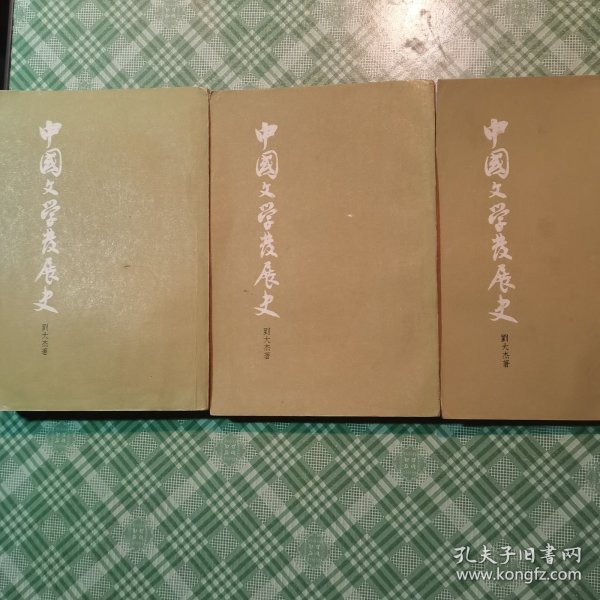 中國文学發展史
劉大杰著
中國文学發展史
劉大杰著
中國文学發展史
劉大杰著
孔夫子旧书网
www.kongfz.com